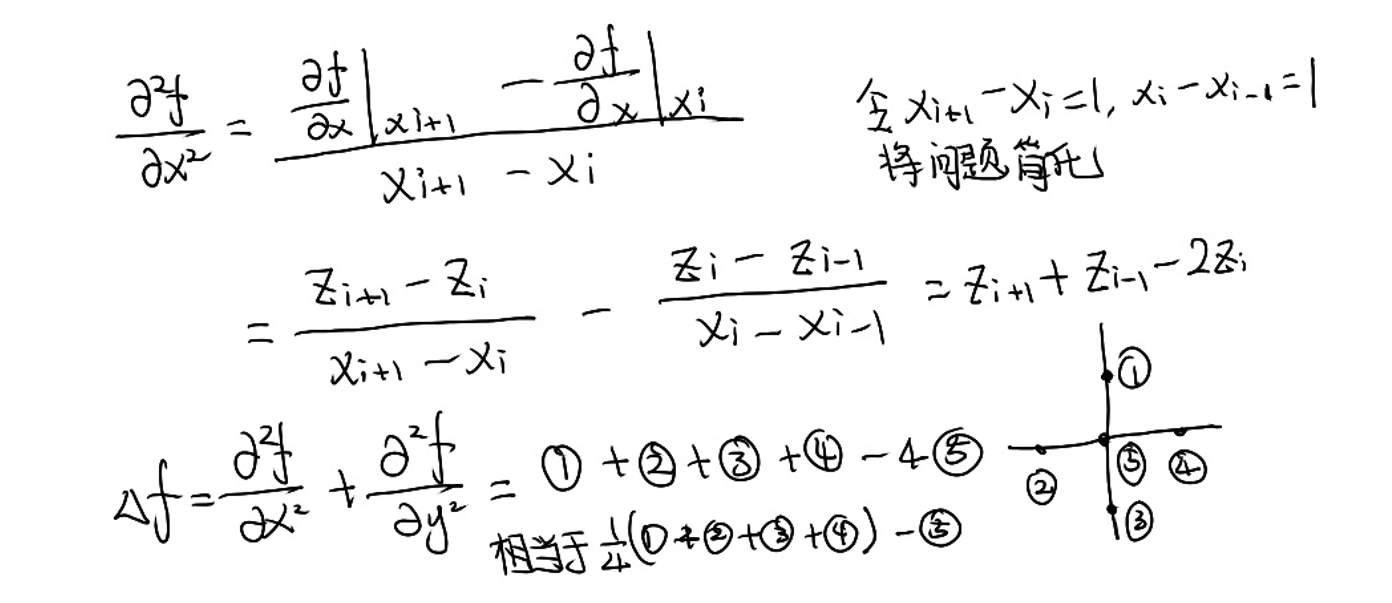 ∂²f/∂x² = (∂f/∂x|xi+1 − ∂f/∂x|xi)/(xi+1 − xi)
令 xi+1 − xi = 1, xi − xi−1 = 1
将问题简化
= (zi+1 − zi)/(xi+1 − xi) − (zi − zi−1)/(xi − xi−1) = zi+1 + zi−1 − 2zi
Δf = ∂²f/∂x² + ∂²f/∂y² = ① + ② + ③ + ④ − 4⑤
相当于 1/4(① + ② + ③ + ④) − ⑤
①
② ⑤ ④
③